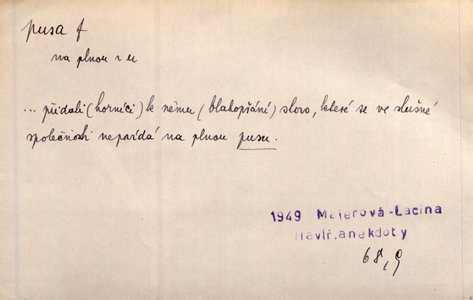 pusa f
na plnou ~ u
... přidali (horníci) k němu (blahopřání) slovo, které se ve slušné
společnosti nepovídá na plnou pusu.
1949 Majerová-Lacina
Havíř.anekdoty
68,9